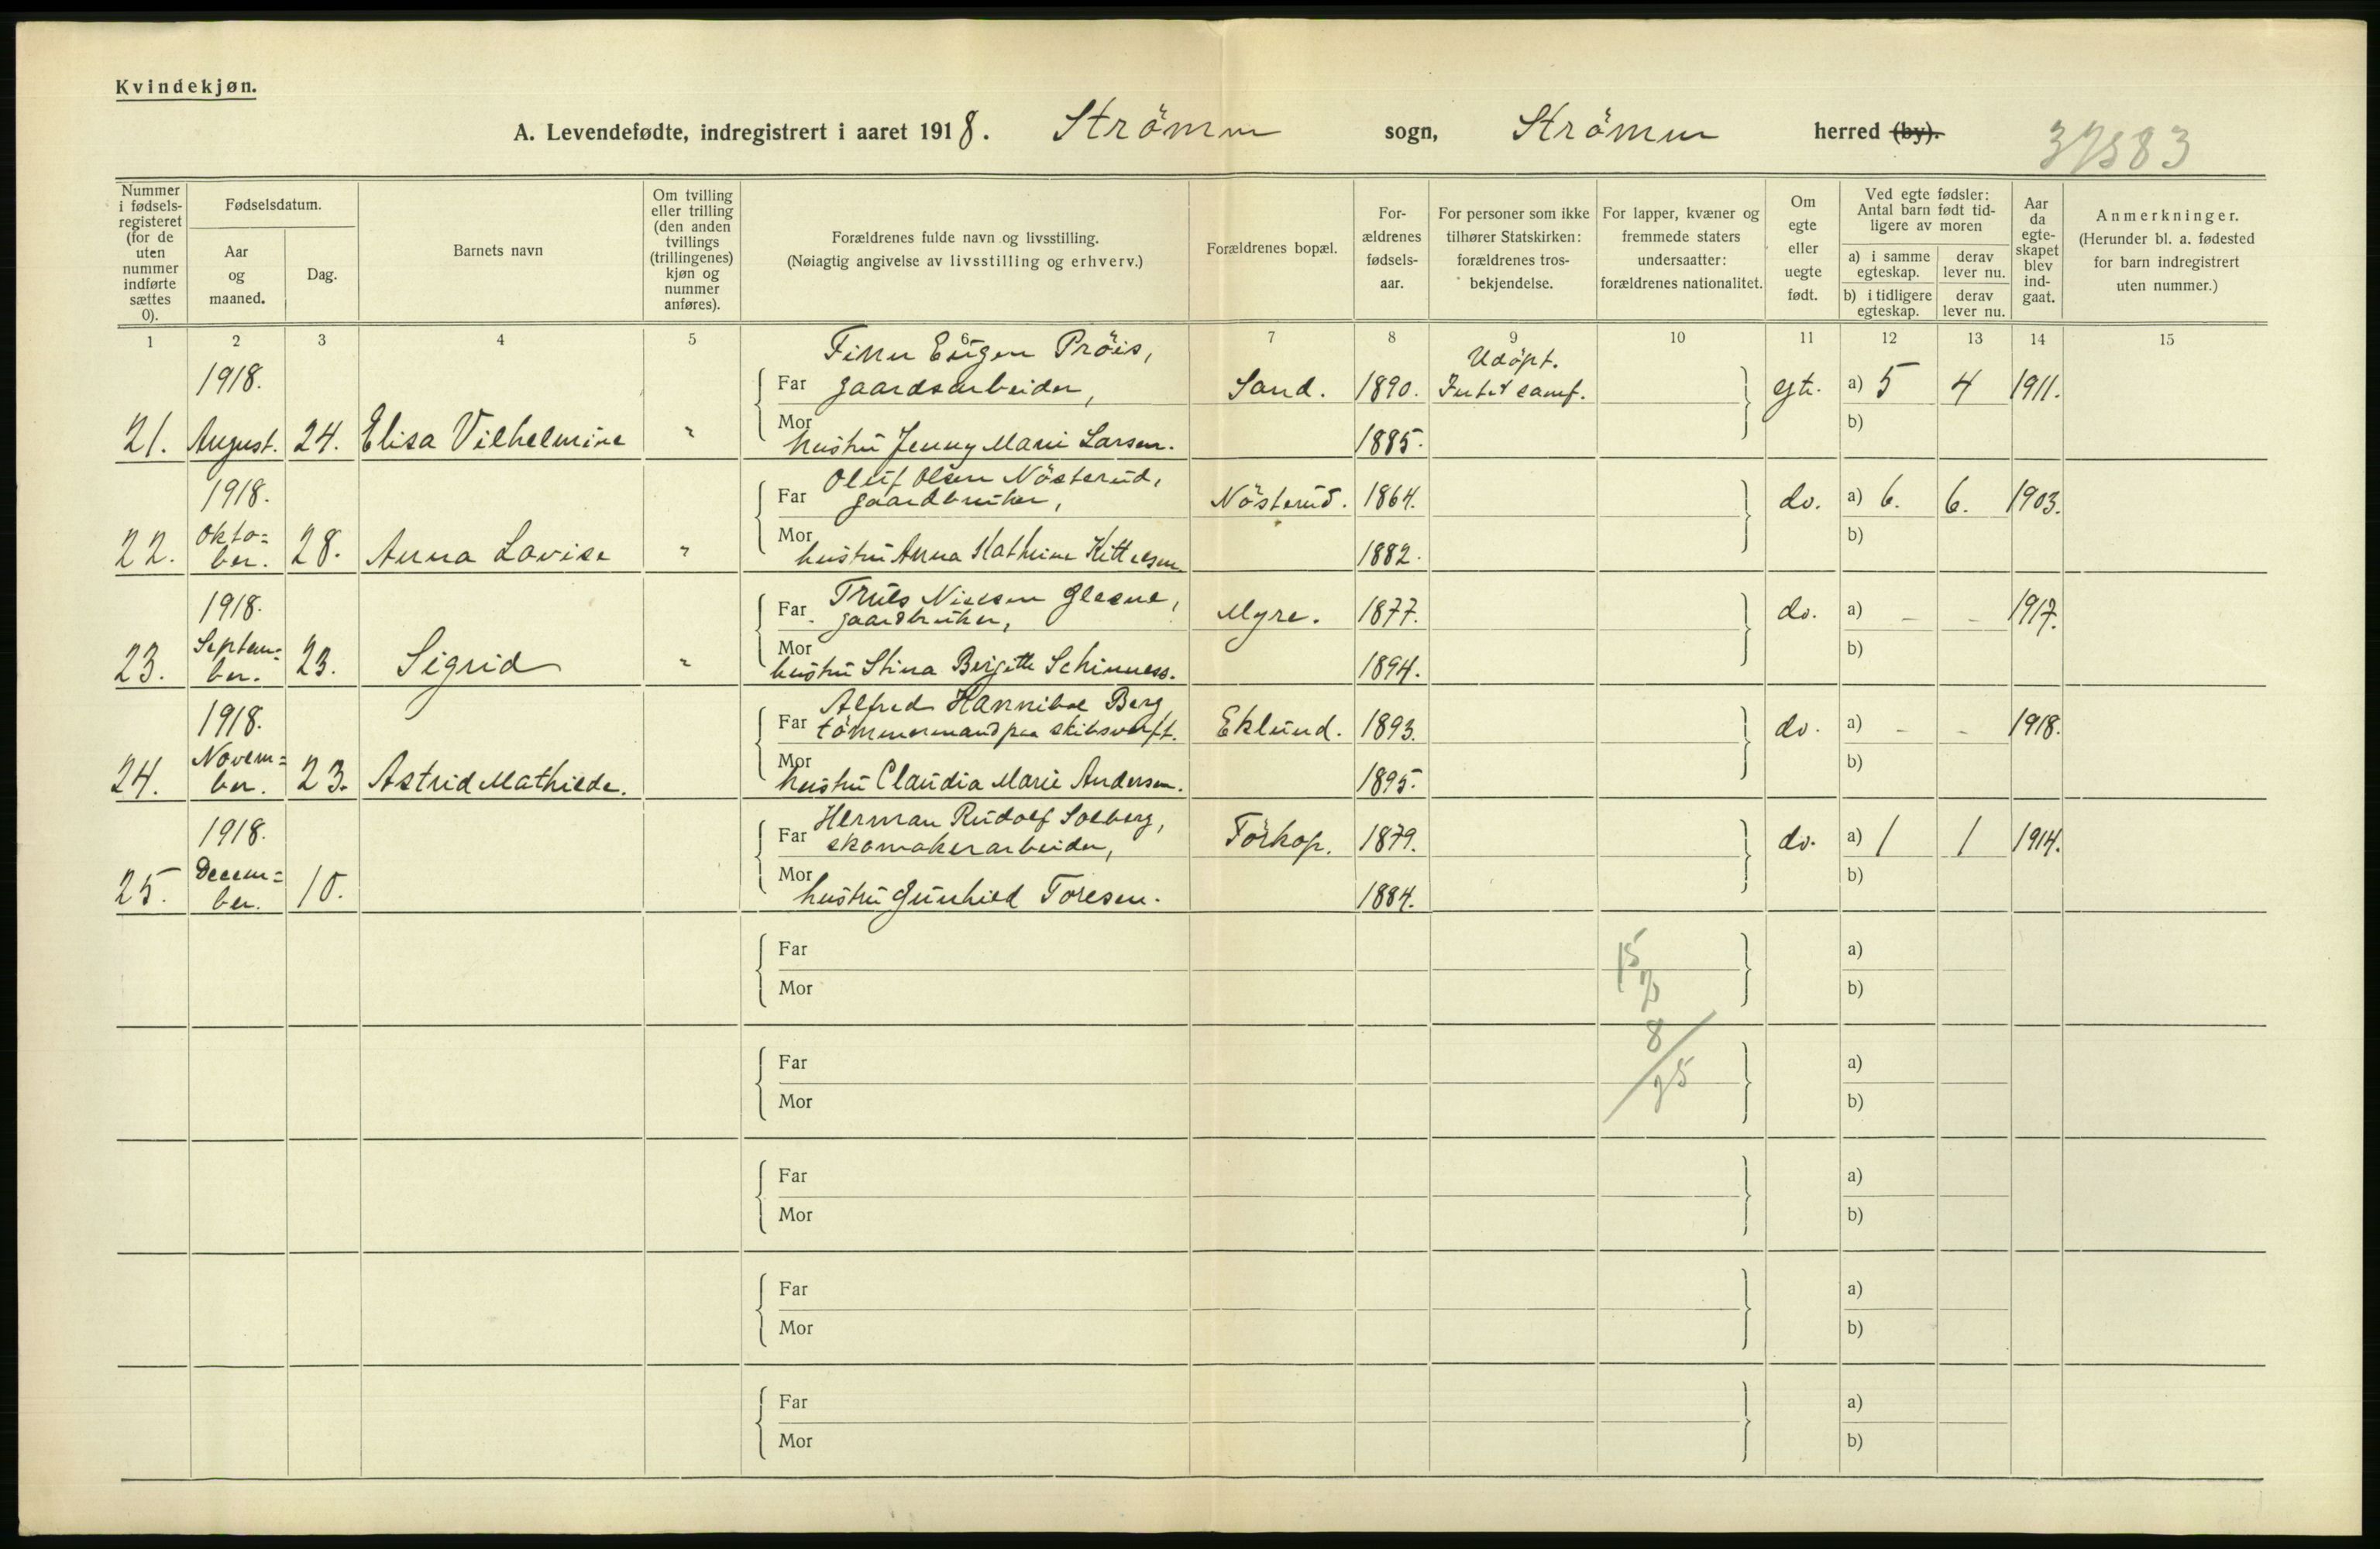 Kvindekjøn.
A. Levendefødte, indregistrert i aaret 1918. Strömm sogn, Strömm herred (by).
37583
Nummer i fødselsregisteret (for de uten nummer indførte sættes 0).
Fødselsdatum.
Aar og maaned.
Dag.
Barnets navn
Om tvilling eller trilling (den anden tvillings (trillingenes) kjøn og nummer anføres).
Forældrenes fulde navn og livsstilling.
(Nøiagtig angivelse av livsstilling og erhverv.)
Forældrenes bopæl.
For-ældrenes fødsels-aar.
For personer som ikke tilhører Statskirken: forældrenes tros-bekjendelse.
For lapper, kvæner og fremmede staters undersaatter: forældrenes nationalitet.
Om egte eller uegte født.
Ved egte fødsler: Antal barn født tid-ligere av moren
a) i samme egteskap.
derav lever nu.
b) i tidligere egteskap.
derav lever nu.
Aar da egte-skapet blev ind-gaat.
Anmerkninger.
(Herunder bl. a. fødested for barn indregistrert uten nummer.)
1 2 3 4 5 6 7 8 9 10 11 12 13 14 15
1918.
Finn Eugen Pröis,
Udöpt.
Far gaardsarbeider, Sand. 1890. Intet samf. egte. a) 5 4 1911.
21. August. 24. Elisa Vilhelmine "
Mor hustru Jenny Marie Larsen. 1885. b)
1918.
Oluf Olsen Nösterud,
Far gaardbruker, Nösterud. 1864. do. a) 6. 6. 1903.
22. Okto=
ber. 28. Anna Lovise "
Mor hustru Anna Kathrine Kittelsen 1882. b)
1918.
Truls Nielsen Glesne,
Far gaardbruker, Myre. 1877. do. a) - - 1917.
23. Septem=
ber. 23. Sigrid "
Mor hustru Stina Birgitte 1894. b)
1918.
Alfred Hannibal Berg,
Far tömmermand paa skibsverft. Eklund. 1893. do. a) - - 1918.
24. Novem=
ber. 23. Astrid Mathilde.
Mor hustru Claudia Marie Andersen. 1895. b)
1918.
Herman Rudolf Solberg,
Far skomakerarbeider, Törkop. 1879. do. a) 1 1 1914.
25. Decem=
ber. 10.
Mor hustru Gunhild Toresen. 1884. b)
Far a)
15
Mor b)
7
8
Far a)
25
Mor b)
Far a)
Mor b)
Far a)
Mor b)
Far a)
Mor b)